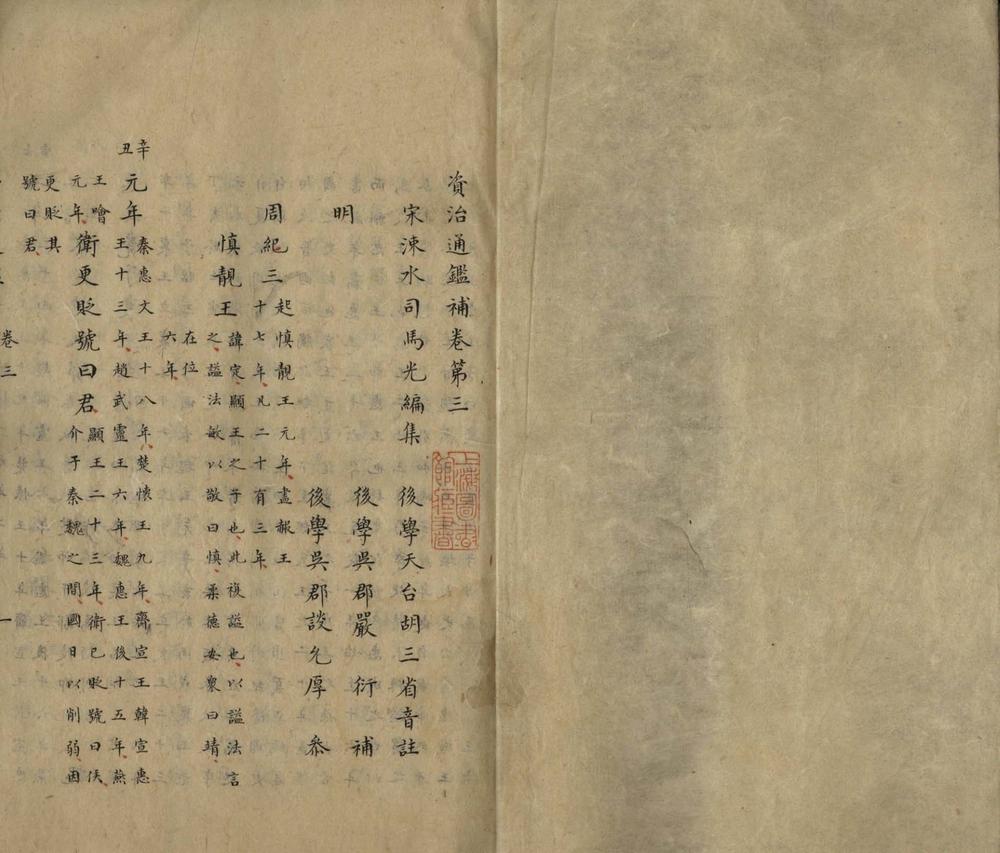 資治通鑑補卷第三
宋涑水司馬光編集　後學天台胡三省音註
明　後學吳郡嚴衍補
後學吳郡談允厚叅
周紀三
起慎靚王元年盡赧王
十七年凡二十有三年
慎靚王
諱定顯王之子也此複謚也以謚法言
之謚法敏以敬曰慎柔德安衆曰靖
在位
六年
辛丑
元年
秦惠文王十八年楚懷王九年齊宣王韓宣惠
王十三年趙武靈王六年魏惠王後十五年燕
王噲
元年
衛更貶號曰君
顯王二十三年衛已貶號曰侯
介于秦魏之間國日以削弱因
更貶其
號曰君
卷三
一
上海圖書館藏書